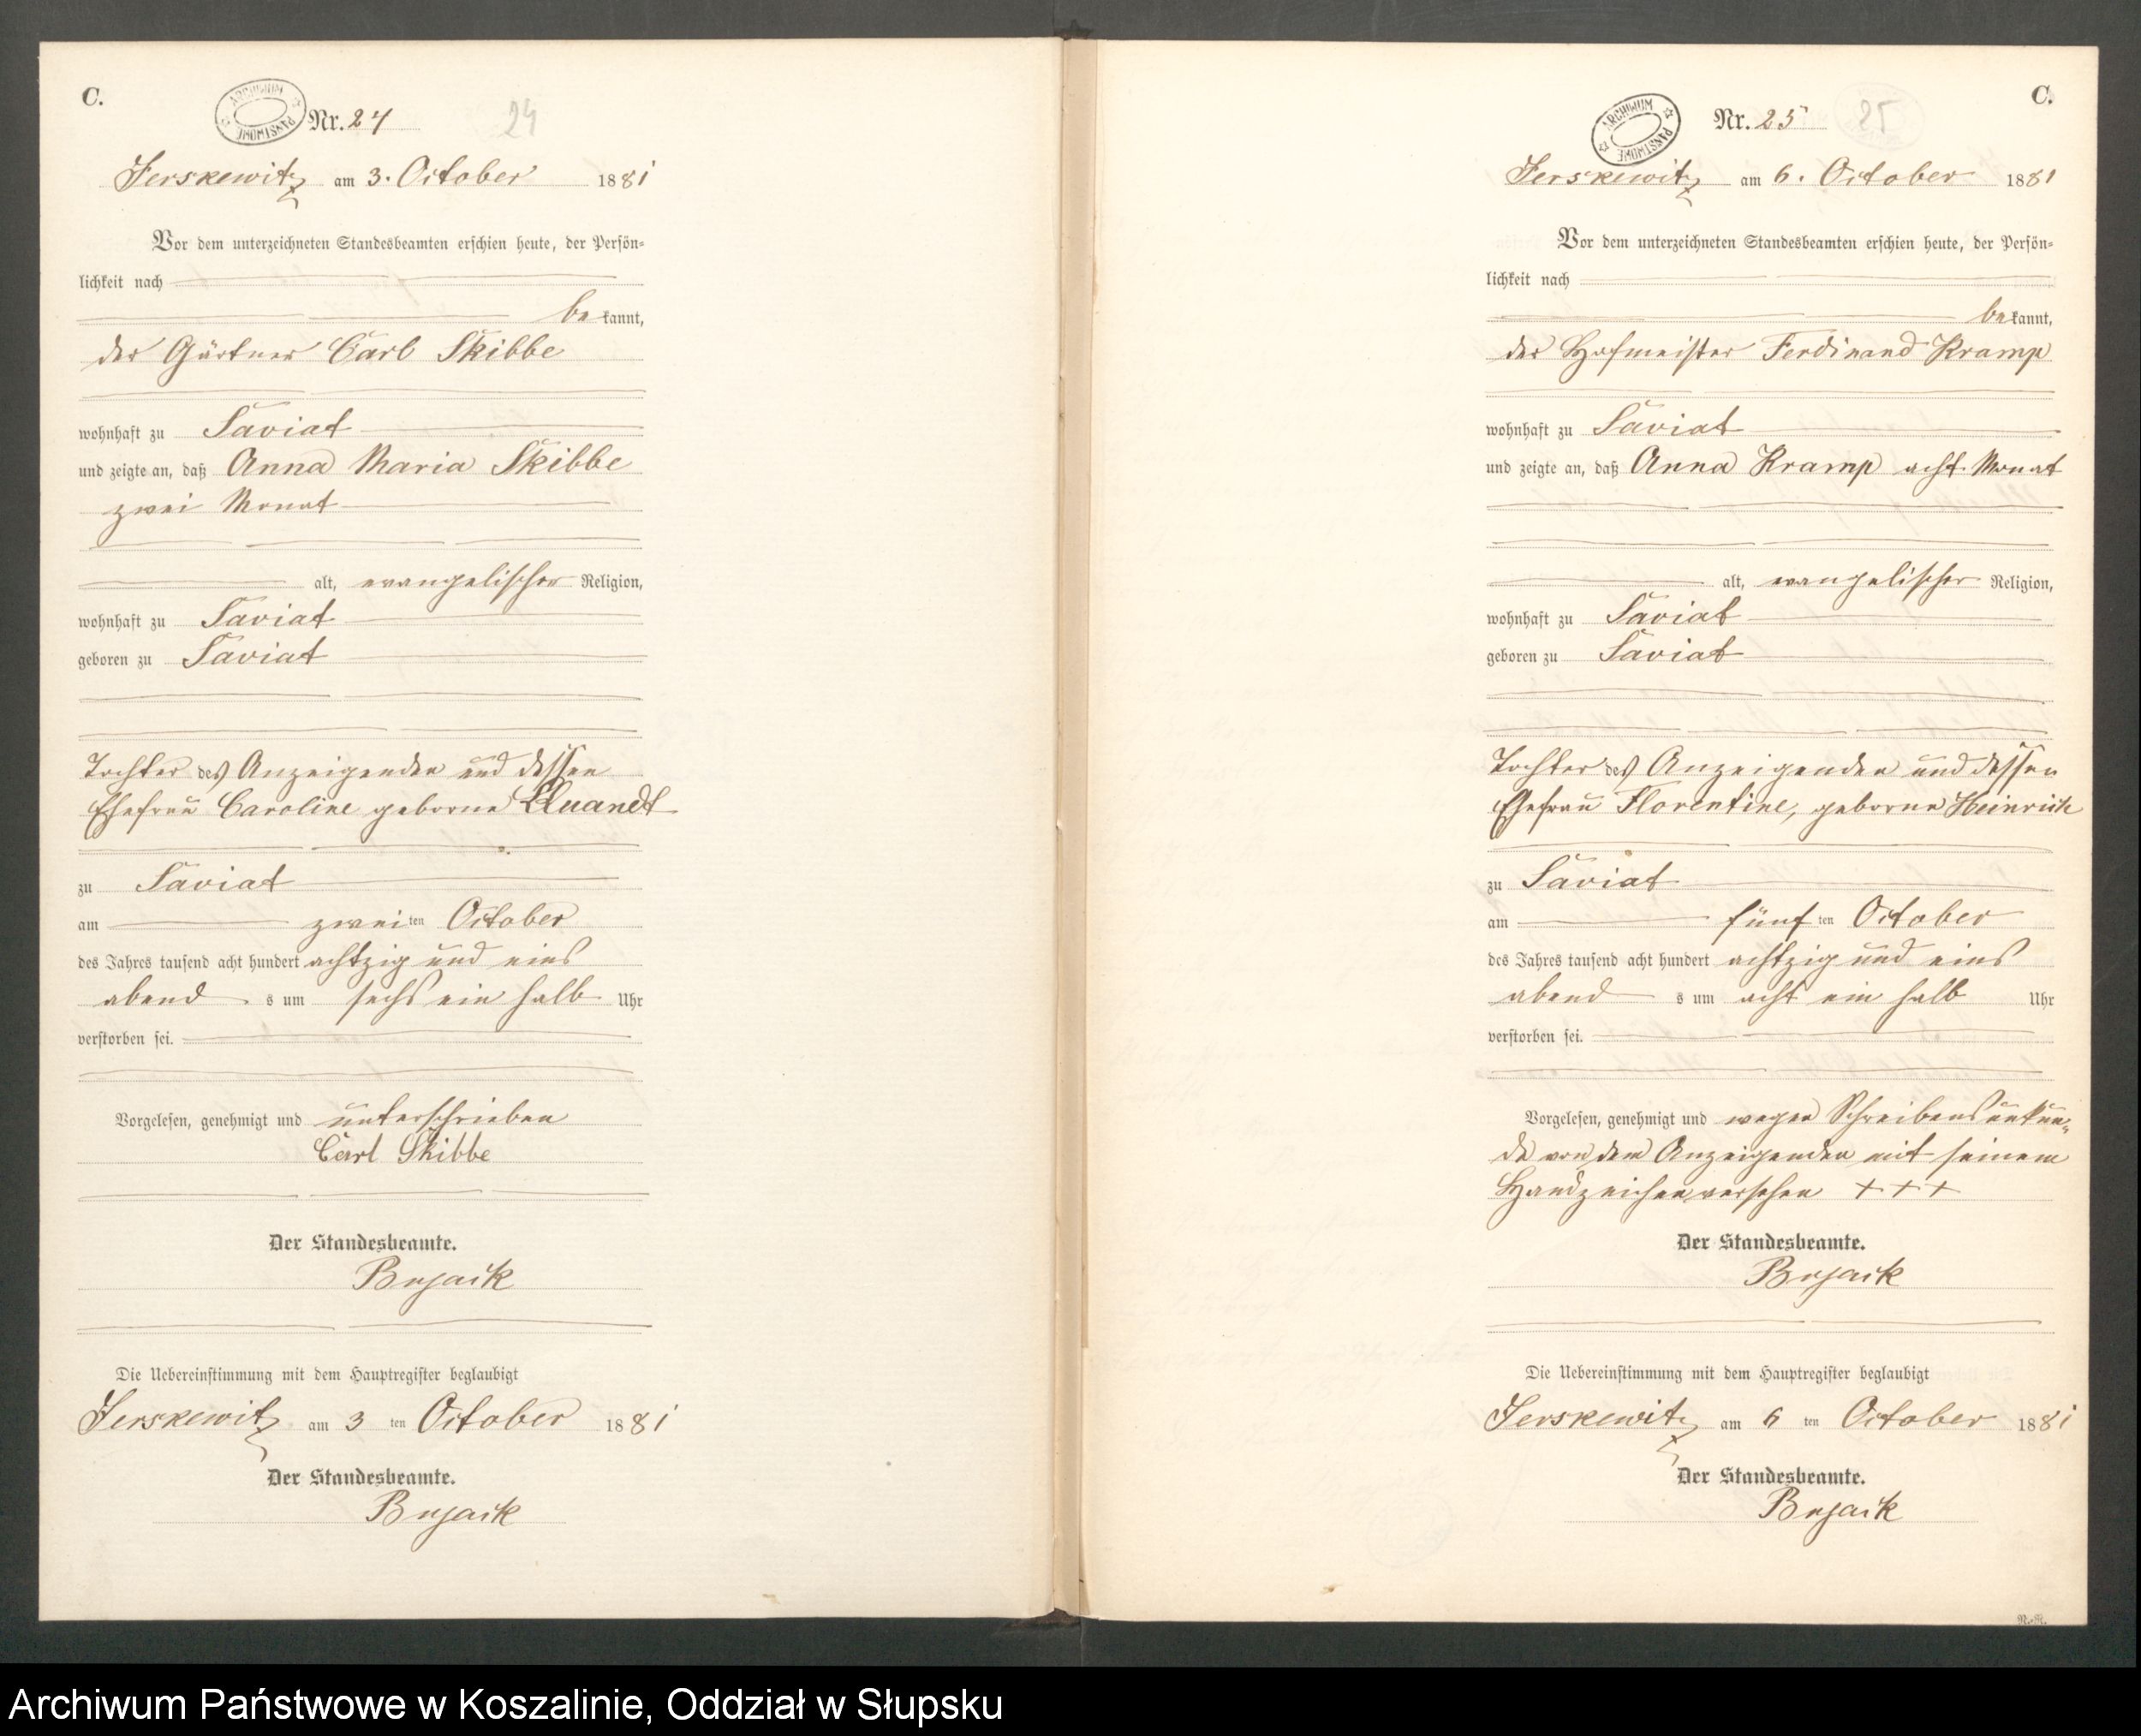 C.
ARCHIWUM PAŃSTWOWE
Nr. 24
24
Jerskewitz am 3. October 1881
Vor dem unterzeichneten Standesbeamten erschien heute, der Persön-
lichkeit nach
bekannt,
der Gärtner Carl Skibbe
wohnhaft zu Saviat
und zeigte an, daß Anna Maria Skibbe
zwei Monat
alt, evangelischer Religion,
wohnhaft zu Saviat
geboren zu Saviat
Tochter des Anzeigenden und dessen
Ehefrau Caroline geborne Quandt
zu Saviat
am zweiten October
des Jahres tausend acht hundert achtzig und eins
abends um sechs ein halb Uhr
verstorben sei.
Vorgelesen, genehmigt und unterschrieben
Carl Skibbe
Der Standesbeamte.
Bujack
Die Uebereinstimmung mit dem Hauptregister beglaubigt
Jerskewitz am 3 ten October 1881
Der Standesbeamte.
Bujack
C.
ARCHIWUM PAŃSTWOWE
Nr. 25
25
Jerskewitz am 6. October 1881
Vor dem unterzeichneten Standesbeamten erschien heute, der Persön-
lichkeit nach
bekannt,
der Hofmeister Ferdinand Kramp
wohnhaft zu Saviat
und zeigte an, daß Anna Kramp acht Monat
alt, evangelischer Religion,
wohnhaft zu Saviat
geboren zu Saviat
Tochter des Anzeigenden und dessen
Ehefrau Florentine, geborne Heinrich
zu Saviat
am fünften October
des Jahres tausend acht hundert achtzig und eins
abends um acht ein halb Uhr
verstorben sei.
Vorgelesen, genehmigt und wegen Schreibensunkun-
de von dem Anzeigenden mit seinem
Handzeichen versehen + + +
Der Standesbeamte.
Bujack
Die Uebereinstimmung mit dem Hauptregister beglaubigt
Jerskewitz am 6 ten October 1881
Der Standesbeamte.
Bujack
Archiwum Państwowe w Koszalinie, Oddział w Słupsku